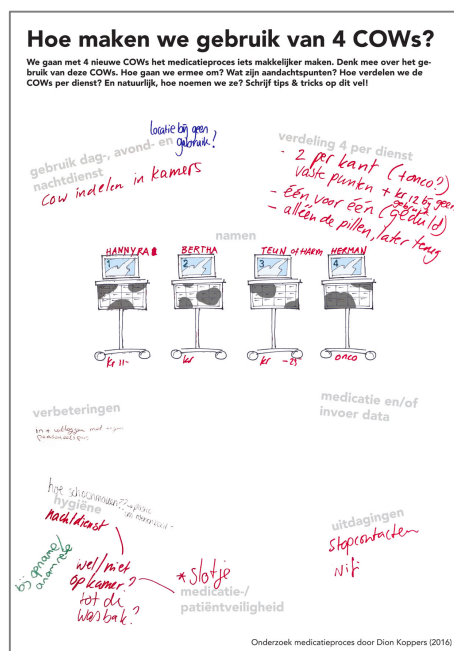 Hoe maken we gebruik van 4 COWs?
We gaan met 4 nieuwe COWs het medicatieproces iets makkelijker maken. Denk mee over het ge-
bruik van deze COWs. Hoe gaan we ermee om? Wat zijn aandachtspunten? Hoe verdelen we de
COWs per dienst? En natuurlijk, hoe noemen we ze? Schrijf tips & tricks op dit vel!
locatie bij geen
gebruik?
gebruik dag-, avond- en
nachtdienst
Cow indelen in kamers
verdeling 4 per dienst
- 2 per kant (+onco?)
vaste punten + kr 12 bij geen
gebruik
- één voor één (geduld)
- alléén de pillen, later terug
namen
HANNYRA
BERTHA
TEUN of HARM
HERMAN
1
2
3
4
kr 11-
kr
kr -25
onco
verbeteringen
medicatie en/of
invoer data
hoe schoonhouden??
hygiëne
nachtdienst
bij opname/
anamnese
wel/niet
op kamer?
tot de
wasbak?
* slotje
medicatie-/
patiëntveiligheid
uitdagingen
stopcontacten
Wifi
Onderzoek medicatieproces door Dion Koppers (2016)